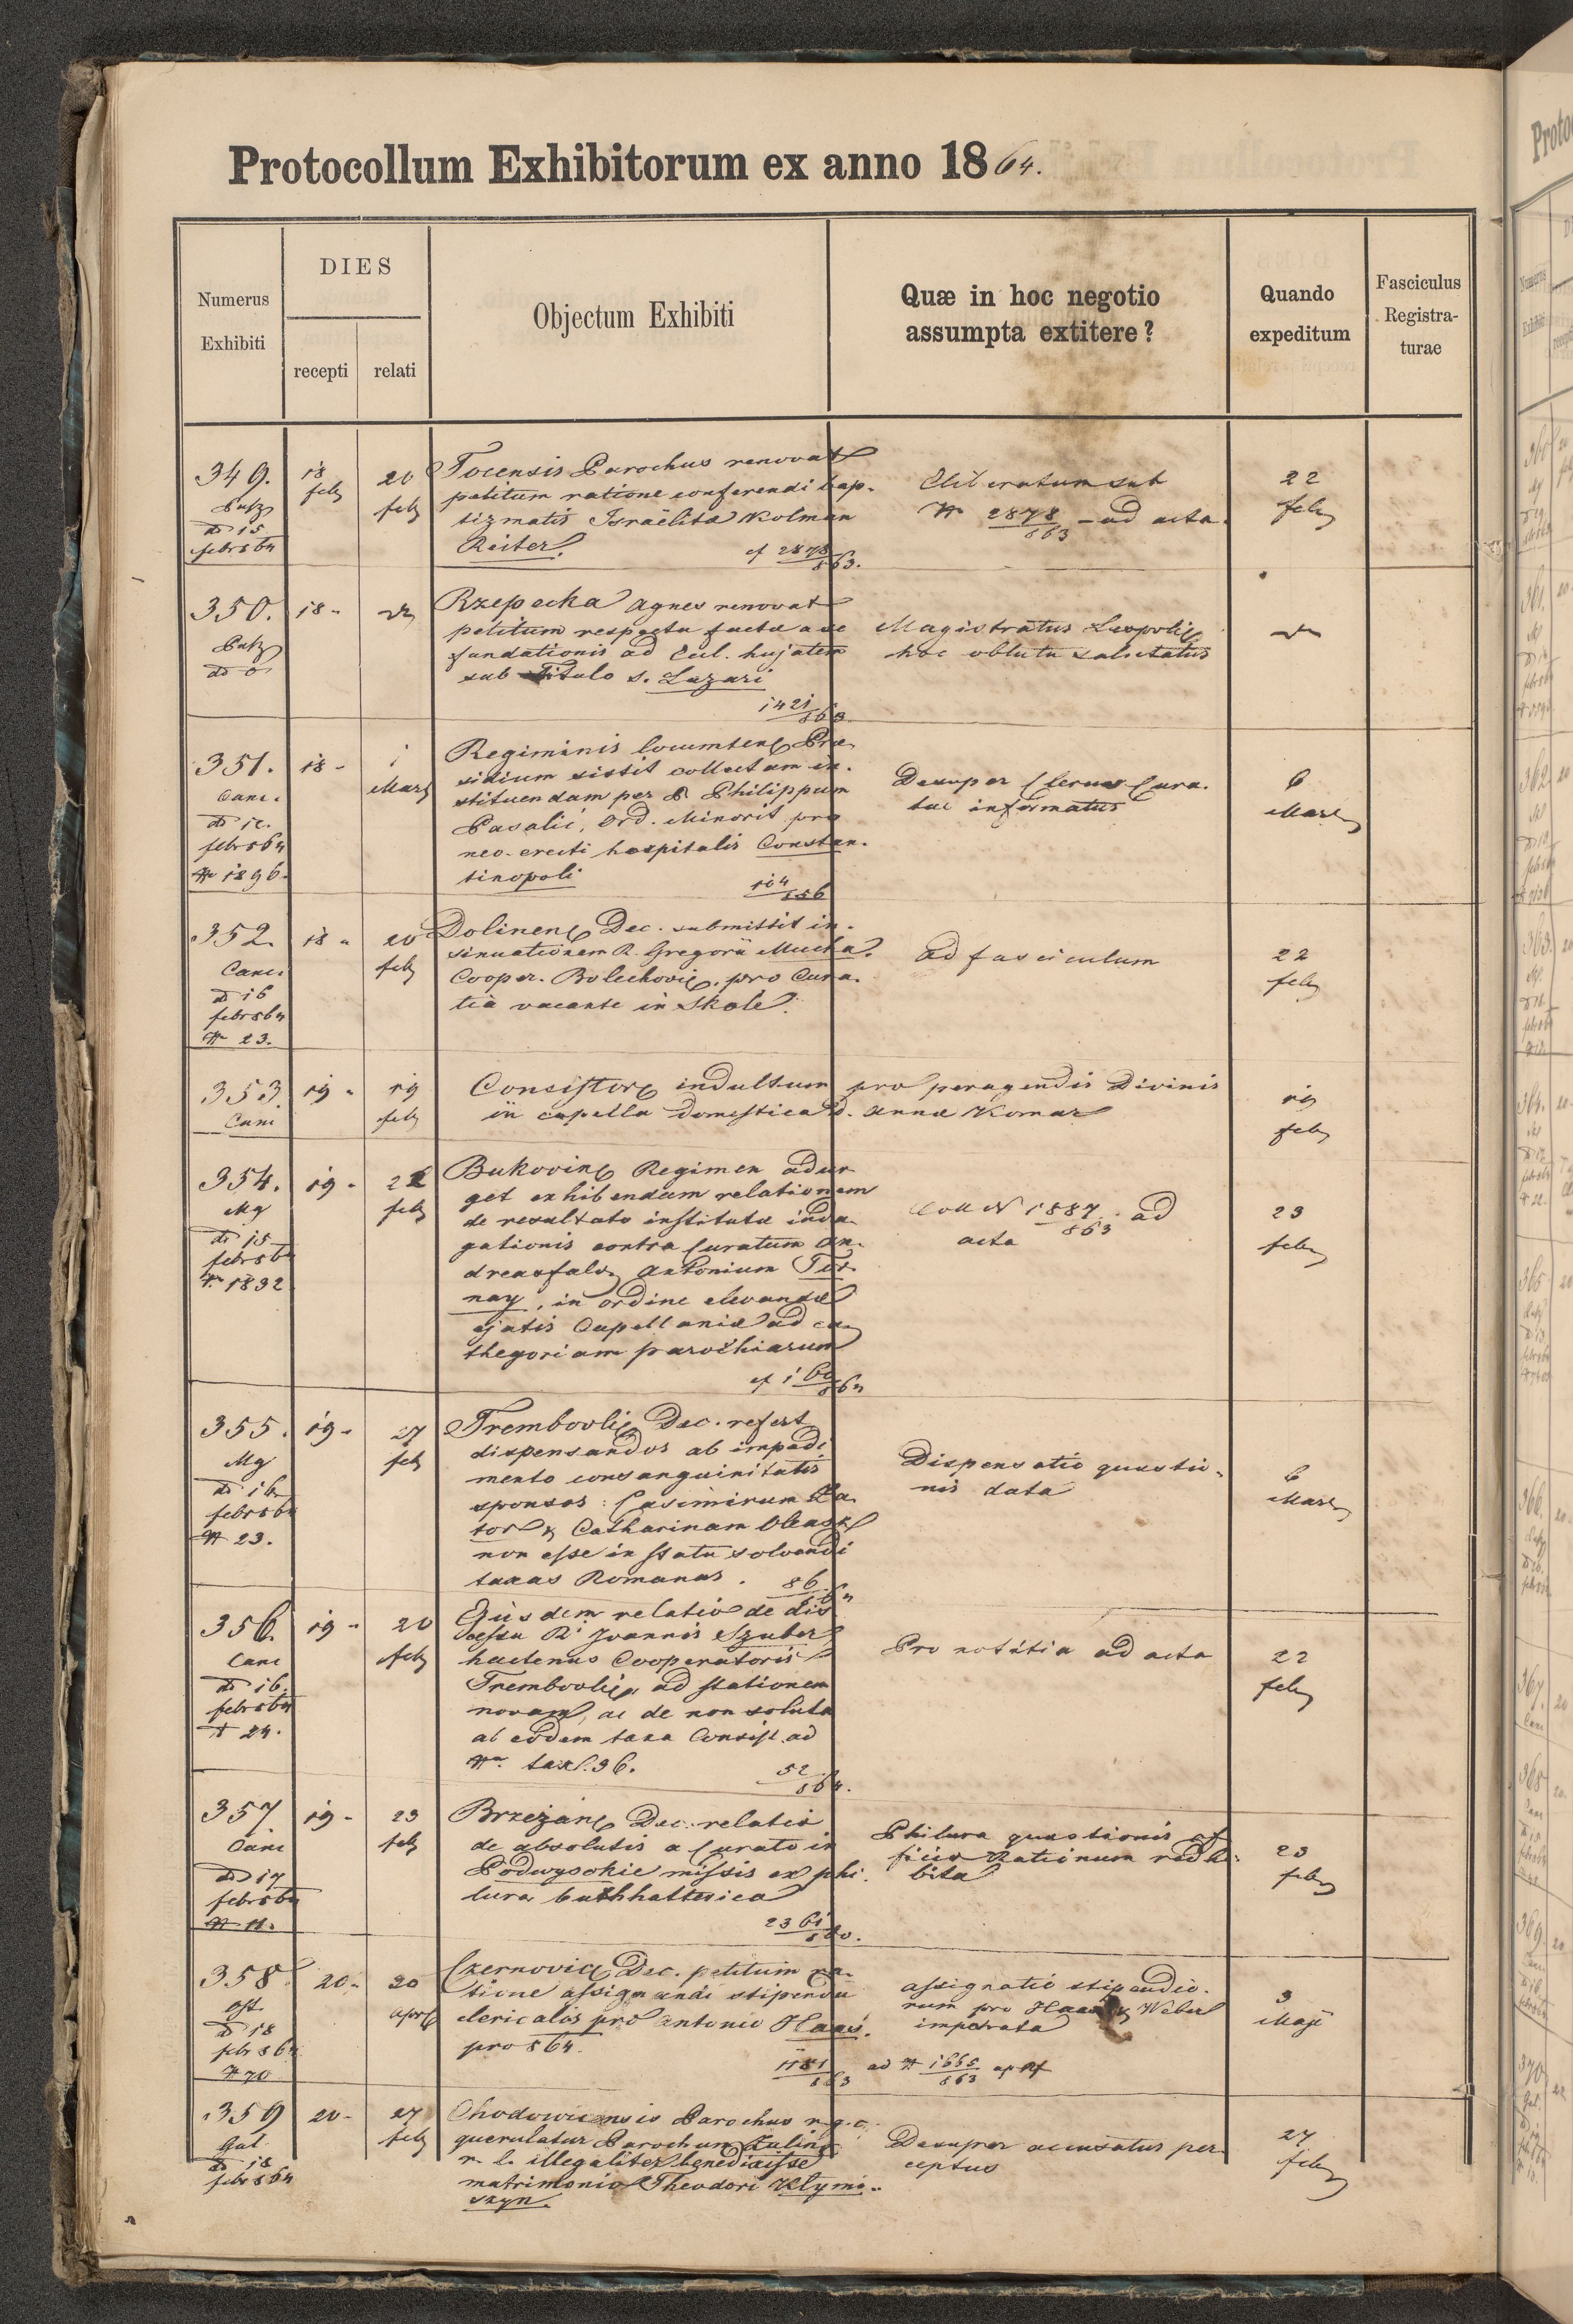 Protocollum Exhibitorum ex anno 1864.
Numerus
Exhibiti
DIES
recepti
relati
Objectum Exhibiti
Quæ in hoc negotio
assumpta extitere?
Quando
expeditum
Fasciculus
Registra-
turae
349.
18
feb
20
feb
15
febr 864
Tocensis Parochus renovat
petitum ratione conferendi bap-
tizmatis Israëlitæ Kolman
Reiter.
cf 2878/863.
Eliberatum sub
N 2878/863 - ad acta.
22
feb
350.
18 -
Rzepecka Agnes renovat
petitum respectu factæ a se
fundationis ad Eccl. hujatem
sub Titulo S. Lazari
1421/863
Magistratus Leopoli
hoc
351.
Canc.
18 -
1
Mart
febr 864
N 1896.
Regiminis locumten Præ
sidium sistit collectam in-
stituendam per P. Philippum
Pasalić, Ord. Minorit pro
neo-erecti hospitalis Constan-
tinopoli
104/856
Desuper Clerus Cura-
tus informatus
6
Mart
352.
Canc.
18 -
20
feb
16
febr 864
N 23.
Dolinen Dec. submittit in-
sinuationem R. Gregorii Mucha
Cooper. Bolechovi. pro Cura-
tia vacante in Skole.
Ad fasciculum
22
feb
353
Canc
19 -
19
feb
Consistor indultum pro peragendis Divinis
in capella domestica D. Annæ Komar
19
feb
354.
Mg
19 -
22
feb
15
febr 864
N 1832
Bukovin Regimen adur
get exhibendam relationem
de resultato institutæ inda-
gationis contra Curatum An-
dreasfalv Antonium Tur
nay, in ordine elevandæ
ejatis Capellaniæ ad ca
thegoriam parochiarum
cf 160/864
Coll N 1887/863 ad
acta
23
feb
355.
Mg
19 -
27
feb
16
febr 864
N 23.
Trembovli Dec. refert
dispensandos ab impedi
mento consanguinitatis
sponsos: Casimirum Za
tor & Catharinam Oleask
non esse in statu solvendi
taxas Romanas.
86/864
Dispensatio quæstio-
nis data
6
Mart
356.
Canc
19 -
20
feb
16.
febr 864
N 24.
Ejusdem relatio de dis
cessu R. Joannis Szuber
hactenus Cooperatoris
Trembovli ad stationem
novam, ac de non soluta
ab eodem taxa Consist ad
Nr. tax. 36.
52/864.
Pro notitia ad acta
22
feb
357
Canc
19 -
23
feb
17
febr 864
N 11.
Brzeżan Dec. relatio
de absolutis a Curato in
Podwysokie missis ex phi-
lura buchhalterica
2361/860.
Philura quæstionis of
ficio Rationum redhi-
bita
23
feb
358.
20 -
20
apr
18
febr 864
N 70
Czernovic Dec. petitum ra-
tione assignandi stipendii
clericalis pro Antonio Haas.
pro 864.
1181/863
assignatio stipendio-
rum pro Haas & Weber
impetrata
ad N 1665/863
3
Maji
359
Gal.
20 -
27
feb
18
febr 864
Chodowicensis Parochus r. g. c.
querulatur Parochum Zulin
r. l. illegaliter benedixisse
matrimonio Theodori Klymi-
szyn.
Desuper accusatus per
ceptus
27
feb